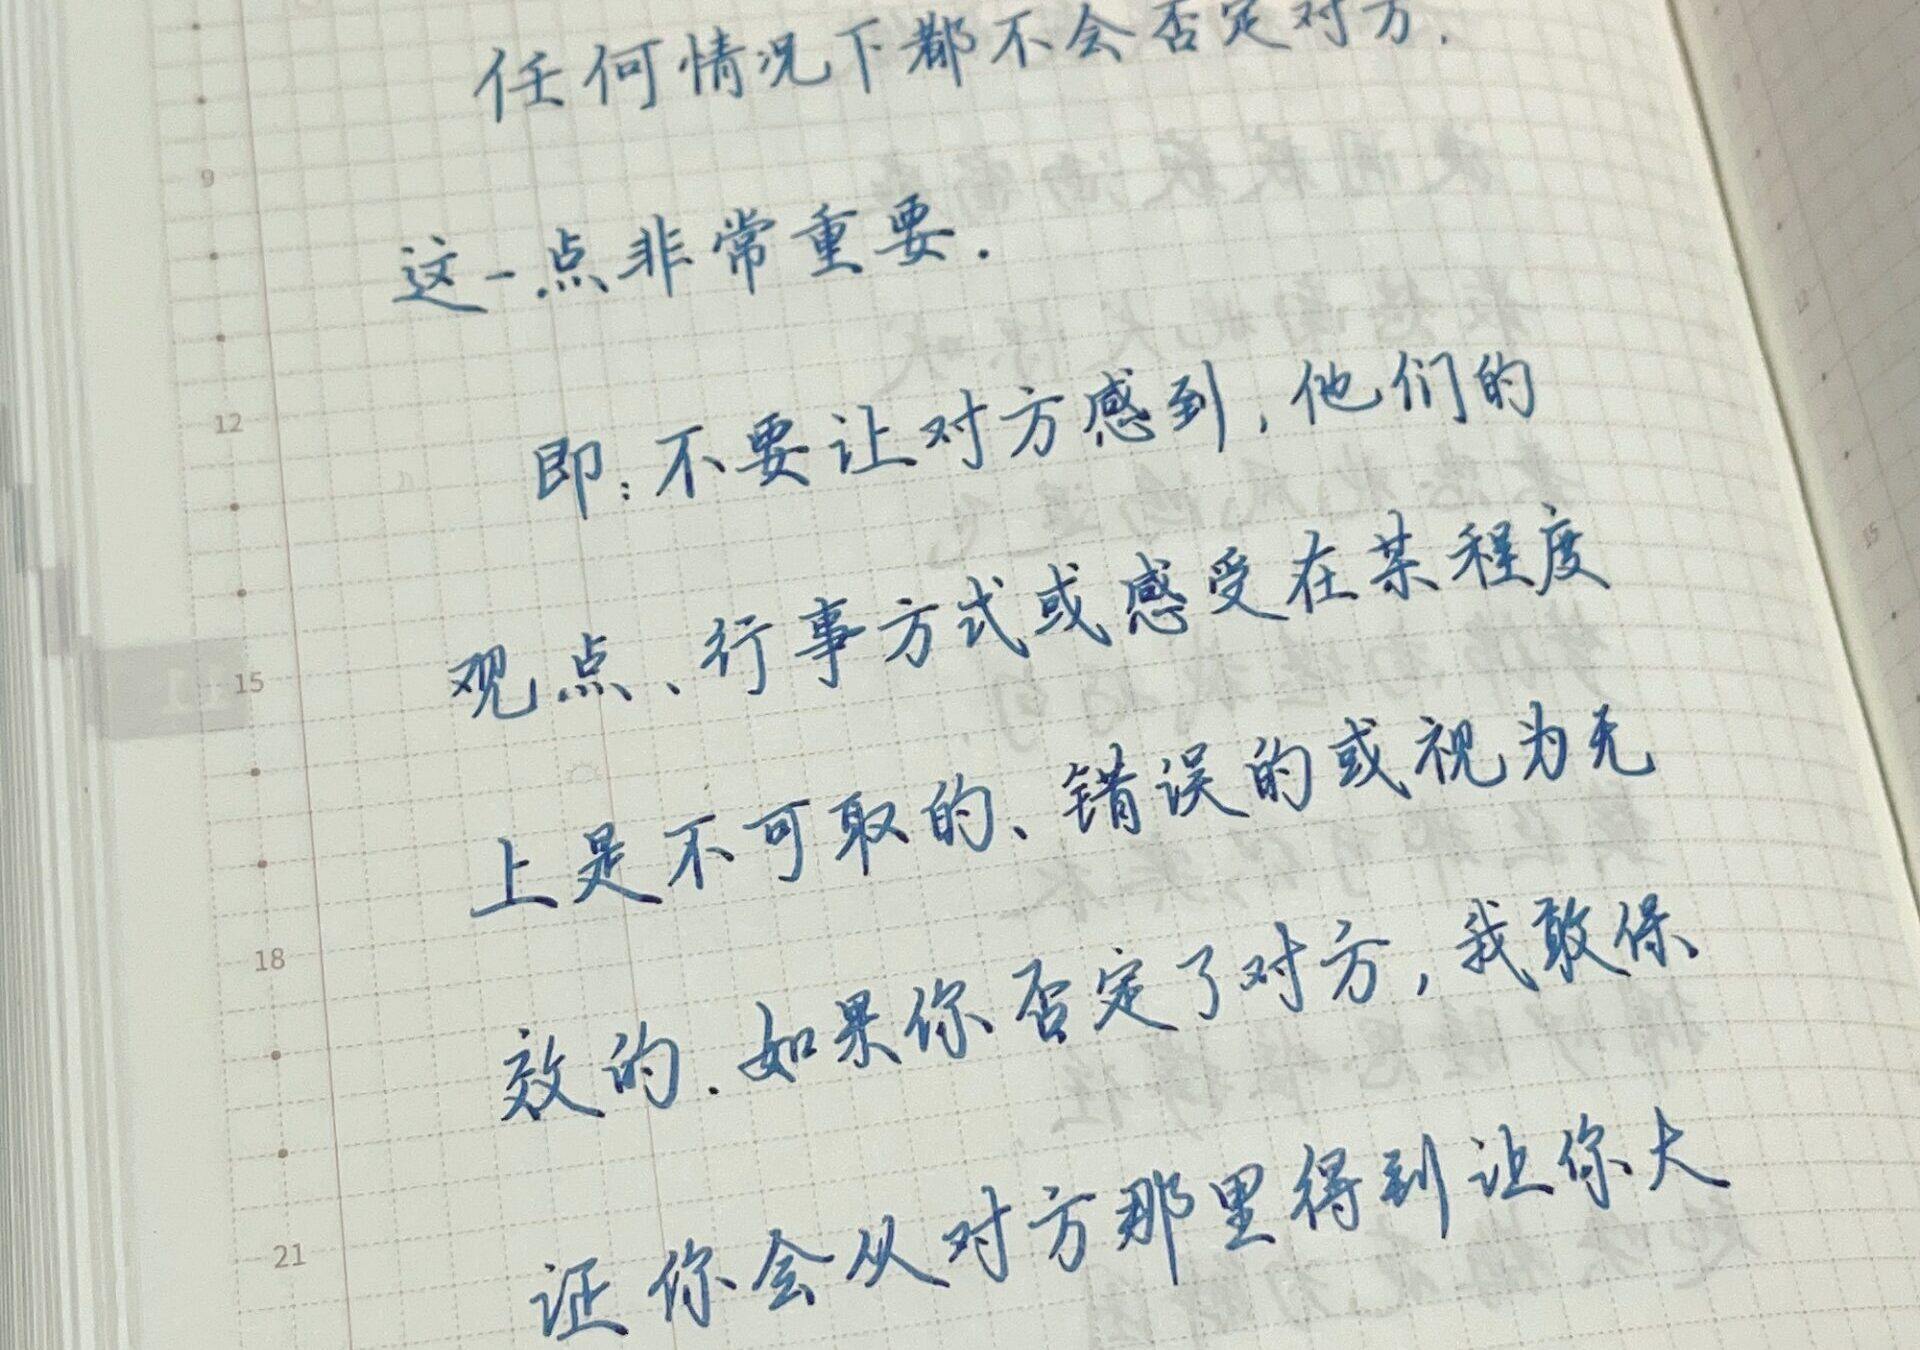 任何情况下都不会否定对方.
9
这一点非常重要.
12
即:不要让对方感到,他们的
观点、行事方式或感受在某程度
15
上是不可取的、错误的或视为无
18
效的.如果你否定了对方,我敢保
21
证你会从对方那里得到让你大